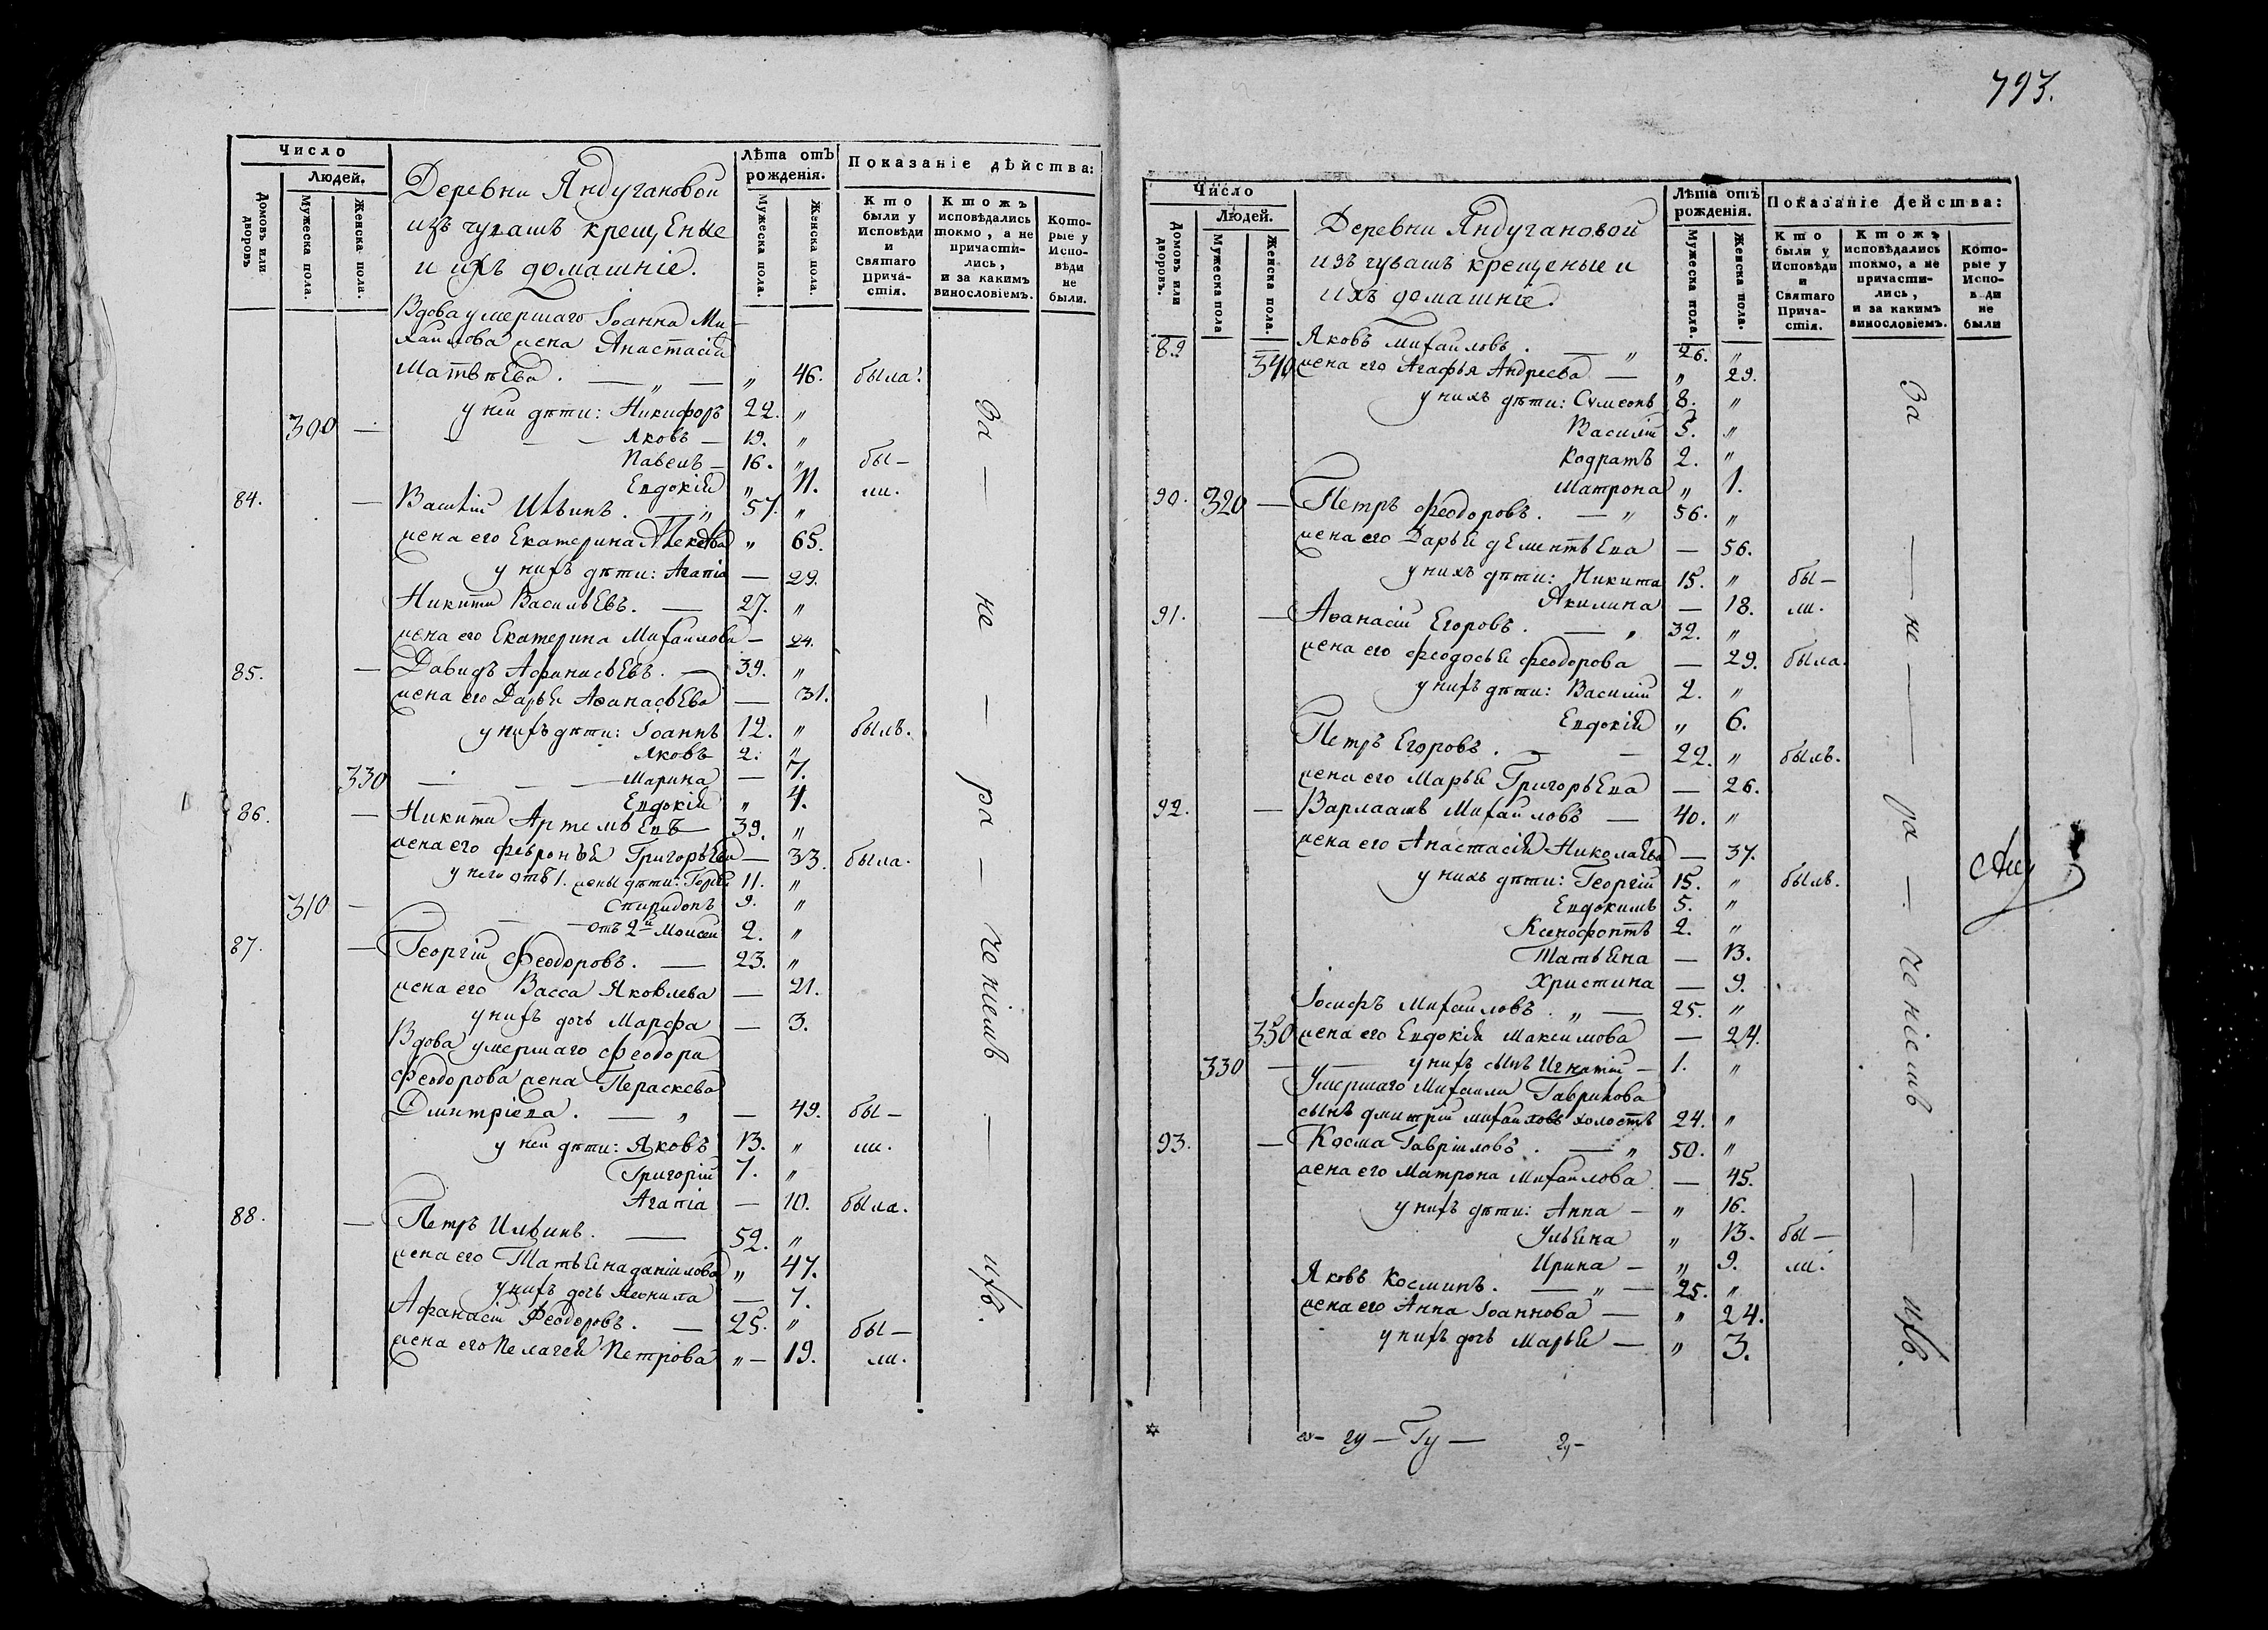 Число
Людей.
Домовъ или дворовъ
Мужеска пола.
Женска пола.
Деревни Яндугановой
изъ чувашъ крещеные
и ихъ домашніе.
Лѣта отъ рожденія.
Мужеска пола.
Женска пола.
Показаніе дѣйства:
Кто были у Исповѣди и Святаго Причастія.
Ктожъ исповѣдались токмо, а не причастились, и за какимъ винословіемъ.
Которые у Исповѣди не были.
Вдова умершаго Іоанна Ми-
хаилова жена Анастасія
Матвѣева. — „ — „ 46. была.
у неи дѣти: Никифоръ 22. „
300 — Яковъ — 19. „
Павелъ — 16. „ бы-
Евдокія „ 11. ли.
84. — Василій Ильинъ. — „ 57. „
жена его Екатерина „ 65.
у нихъ дѣти: Агапія — 29.
Никита Васильевъ. — 27. „
жена его Екатерина Михаилова — 24.
85. — Давидъ Афанасьевъ. — 39. „
жена его Дарья Аѳанасьева — 31.
у нихъ дѣти: Іоаннъ 12. „ былъ.
Яковъ 2. „
330 — Марина — 7.
Евдокія „ 4.
86. — Никита Артемьевъ 39. „
жена его Февронья Григорьева — 33. была.
у него отъ 1. жены дѣти: 11. „
310 — Спиридонъ 9. „
отъ 2й Моисей 2. „
87. — Георгій Феодоровъ. — 23. „
жена его Васса Яковлева — 21.
у нихъ дочь Марфа — 3.
Вдова умершаго Феодора
Феодорова жена Пераскева
Дмитріева. — „ — 49. бы-
у неи дѣти: Яковъ 13. „ ли.
Григорій 7. „
Агапіа — 10. была.
88. — Петръ Ильинъ. — 52. „
жена его Татьяна Даніилова „ 47.
у нихъ дочь Леонила — 7.
Афанасій Феодоровъ. — 25. „ бы-
жена его Пелагея Петрова „ — 19. ли.
За — не — ра — ченіемъ — ихъ.
793.
Число
Людей.
Домовъ или дворовъ.
Мужеска пола
Женска пола.
Деревни Яндугановой
изъ чувашъ крещеные и
ихъ домашніе.
Лѣта отъ рожденія.
Мужеска пола.
Женска пола.
Показаніе Действа:
Кто были у Исповѣди и Святаго Причастія.
Ктожъ исповѣдались токмо, а не причастились, и за какимъ винословіемъ.
Которые у Испов ди не были
89. Яковъ Михаиловъ. — „ 26. „
340 жена его Агафья Андреева — „ 29.
у нихъ дѣти: Сѵмеонъ 8. „
Василій 5. „
Кодратъ 2. „
Матрона „ 1.
90. 320 — Петръ Феодоровъ. — „ 56. „
жена его Дарья Дементьева — 56.
у нихъ дѣти: Никита 15. „ бы-
Акилина — 18. ли.
91. — Аѳанасій Егоровъ. — „ 32. „
жена его Феодосья Феодорова — 29. была.
у нихъ дѣти: Василій 2. „
Евдокія „ 6.
Петръ Егоровъ. — — 22. „ былъ.
жена его Марья Григорьева — 26.
92. — Варлаамъ Михаиловъ — 40. „
жена его Анастасія Николаева — 37.
у нихъ дѣти: Георгій 15. „ былъ.
Евдокимъ 5. „
Ксенофонтъ 2. „
Татьяна — 13.
Христина — 9.
Іосифъ Михаиловъ. „ — 25. „
350 жена его Евдокія Максимова — 24.
330 — у нихъ сынъ Игнатій — 1. „
Умершаго Михаила Гаврилова
сынъ Дмитрій Михаиловъ холостъ 24. „
93. — Косма Гавріиловъ. — „ 50. „
жена его Матрона Михаилова — 45.
у нихъ дѣти: Анна — „ 16.
Ульяна „ 13. бы —
Ирина — „ 9. ли.
Яковъ Косминъ. — „ — 25. „
жена его Анна Іоаннова — „ 24.
у нихъ дочь Марья — „ 3.
За — не — ра — ченіемъ — ихъ.